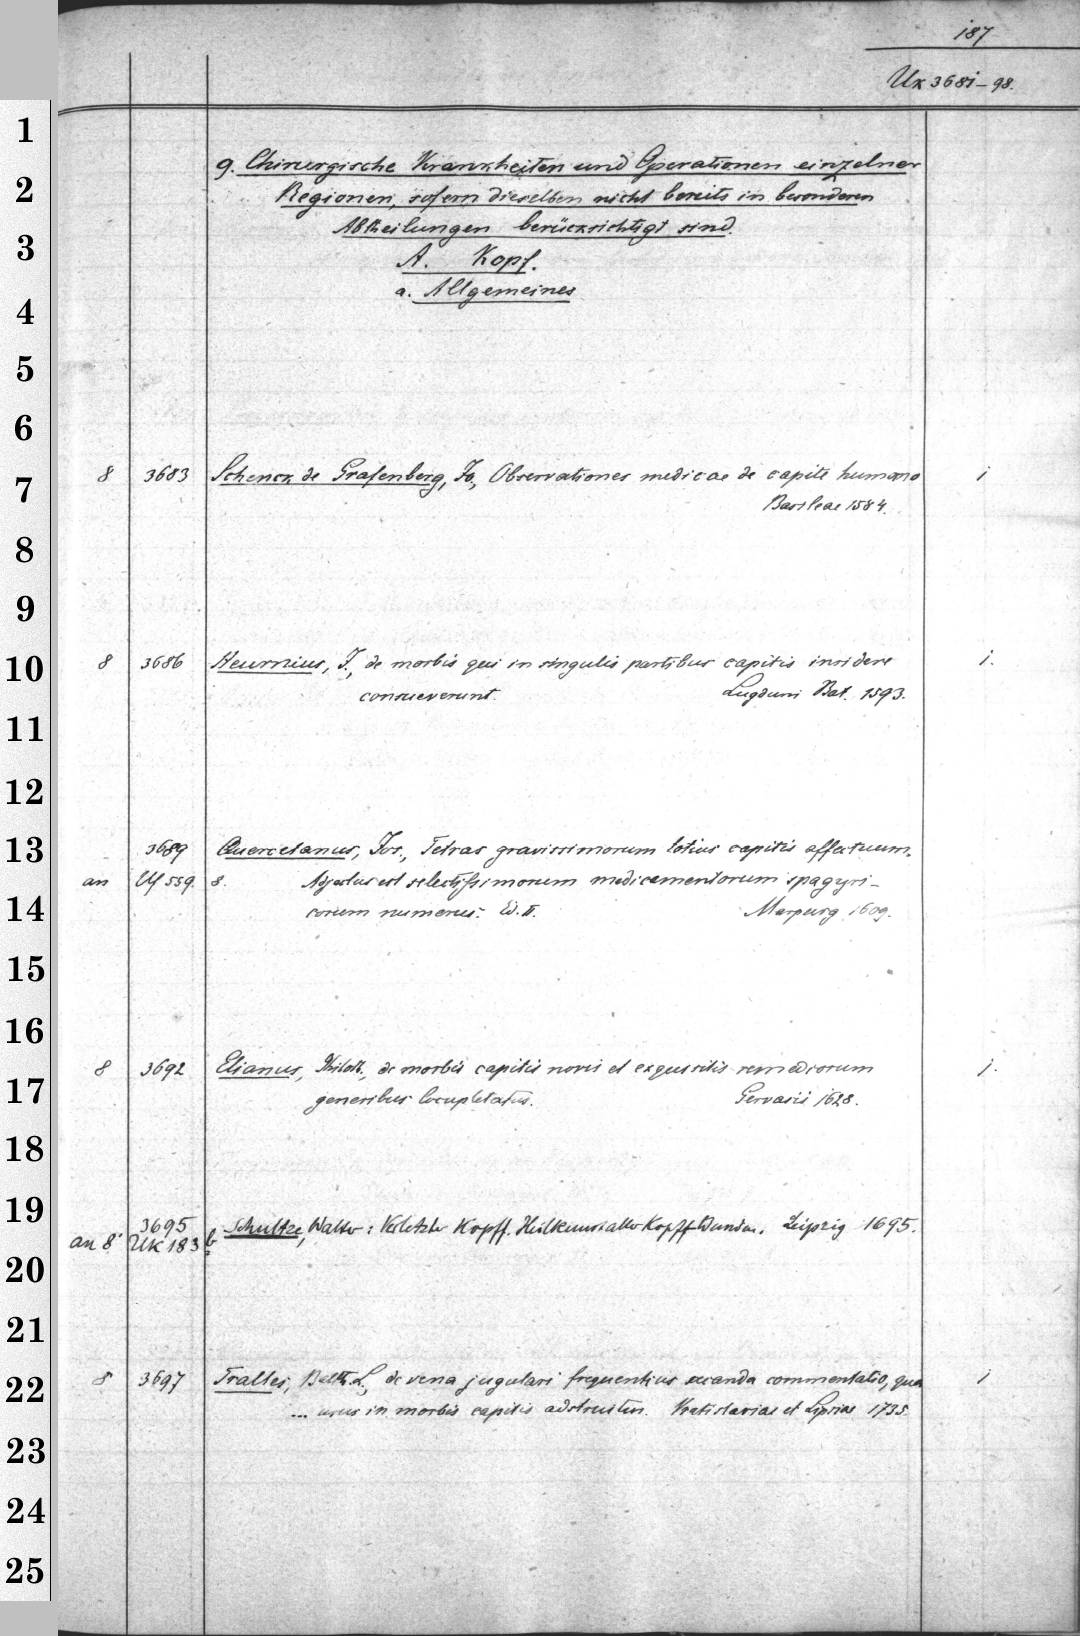 187
Ux 3681-98.
g. Chirurgische Krankheiten und Operationen einzelner
Regionen, sofern dieselben nicht bereits in besonderen
Abtheilungen berücksichtigt sind.
A. Kopf.
a. Allgemeines
1
2
3
4
5
6
7
8
9
10
11
12
13
14
15
16
17
18
19
20
21
22
23
24
25
8 3683 Schenck de Grafenberg, Jo., Observationes medicae de capite humano i
Basileae 1584.
8 3686 Heurnius, J., de morbis qui in singulis partibus capitis insidere i.
consueverunt. Lugduni Bat. 1593.
3689 Quercetanus, Jos., Tetras gravissimorum totius capitis affectuum.
an Uf 559. 8. Adjectus est selectissimorum medicamentorum spagyri-
corum numerus. Ed. II. Marpurg 1609.
8 3692 Elianus, Philoth., de morbis capitis novis et exquisitis remediorum i.
generibus locupletatus. Gervasii 1628.
3695 Schultze, Walter: Verletzter Kopff. Heilkunst aller Kopff Wunden. Leipzig 1695.
an 8° Uk 183 b
8 3697 Tralles, Balth. L., de vena jugulari frequentius secanda commentatio, qua i
... usus in morbis capitis adstruitur. Vratislaviae et Lipsiae 1735.